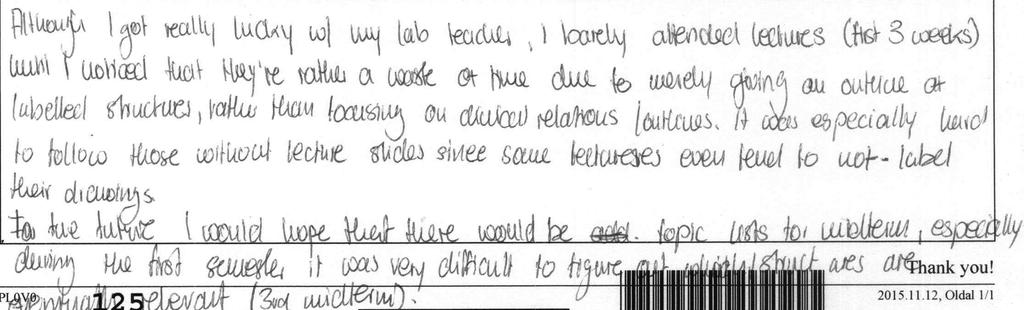 Although I got really lucky w/ my lab teacher, I barely attended lectures (first 3 weeks)
until I noticed that they're rather a waste of time due to merely giving an outline of
labelled structures, rather than focusing on clinical relations / outlines. It was especially hard
to follow those without lecture slides since some lectureres even tend to not-label
their drawings.
For the future I would hope that there would be topic lists for midterm, especially
during the first semester it was very difficult to figure out which structures are
Thank you!
eventually relevant (3rd midterm).
PL9V0 125
2015.11.12, Oldal 1/1